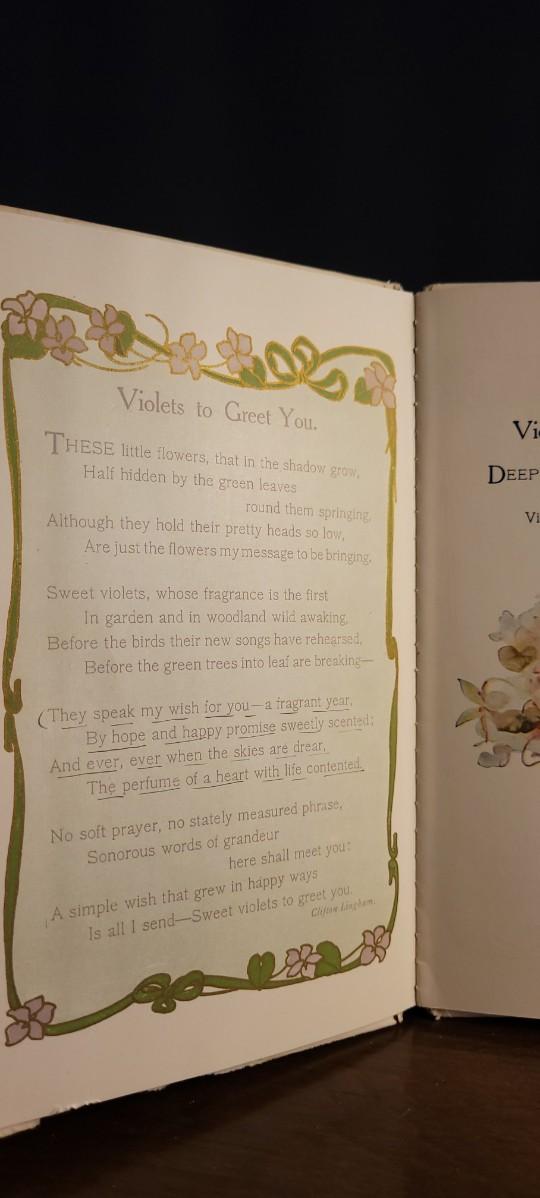 Violets to Greet You.
THESE little flowers, that in the shadow grow,
Half hidden by the green leaves
round them springing,
Although they hold their pretty heads so low,
Are just the flowers my message to be bringing.
Sweet violets, whose fragrance is the first
In garden and in woodland wild awaking,
Before the birds their new songs have rehearsed,
Before the green trees into leaf are breaking—
(They speak my wish for you—a fragrant year,
By hope and happy promise sweetly scented;
And ever, ever when the skies are drear,
The perfume of a heart with life contented.
No soft prayer, no stately measured phrase,
Sonorous words of grandeur
here shall meet you:
A simple wish that grew in happy ways
Is all I send—Sweet violets to greet you.
Clifton Bingham.
DEEP